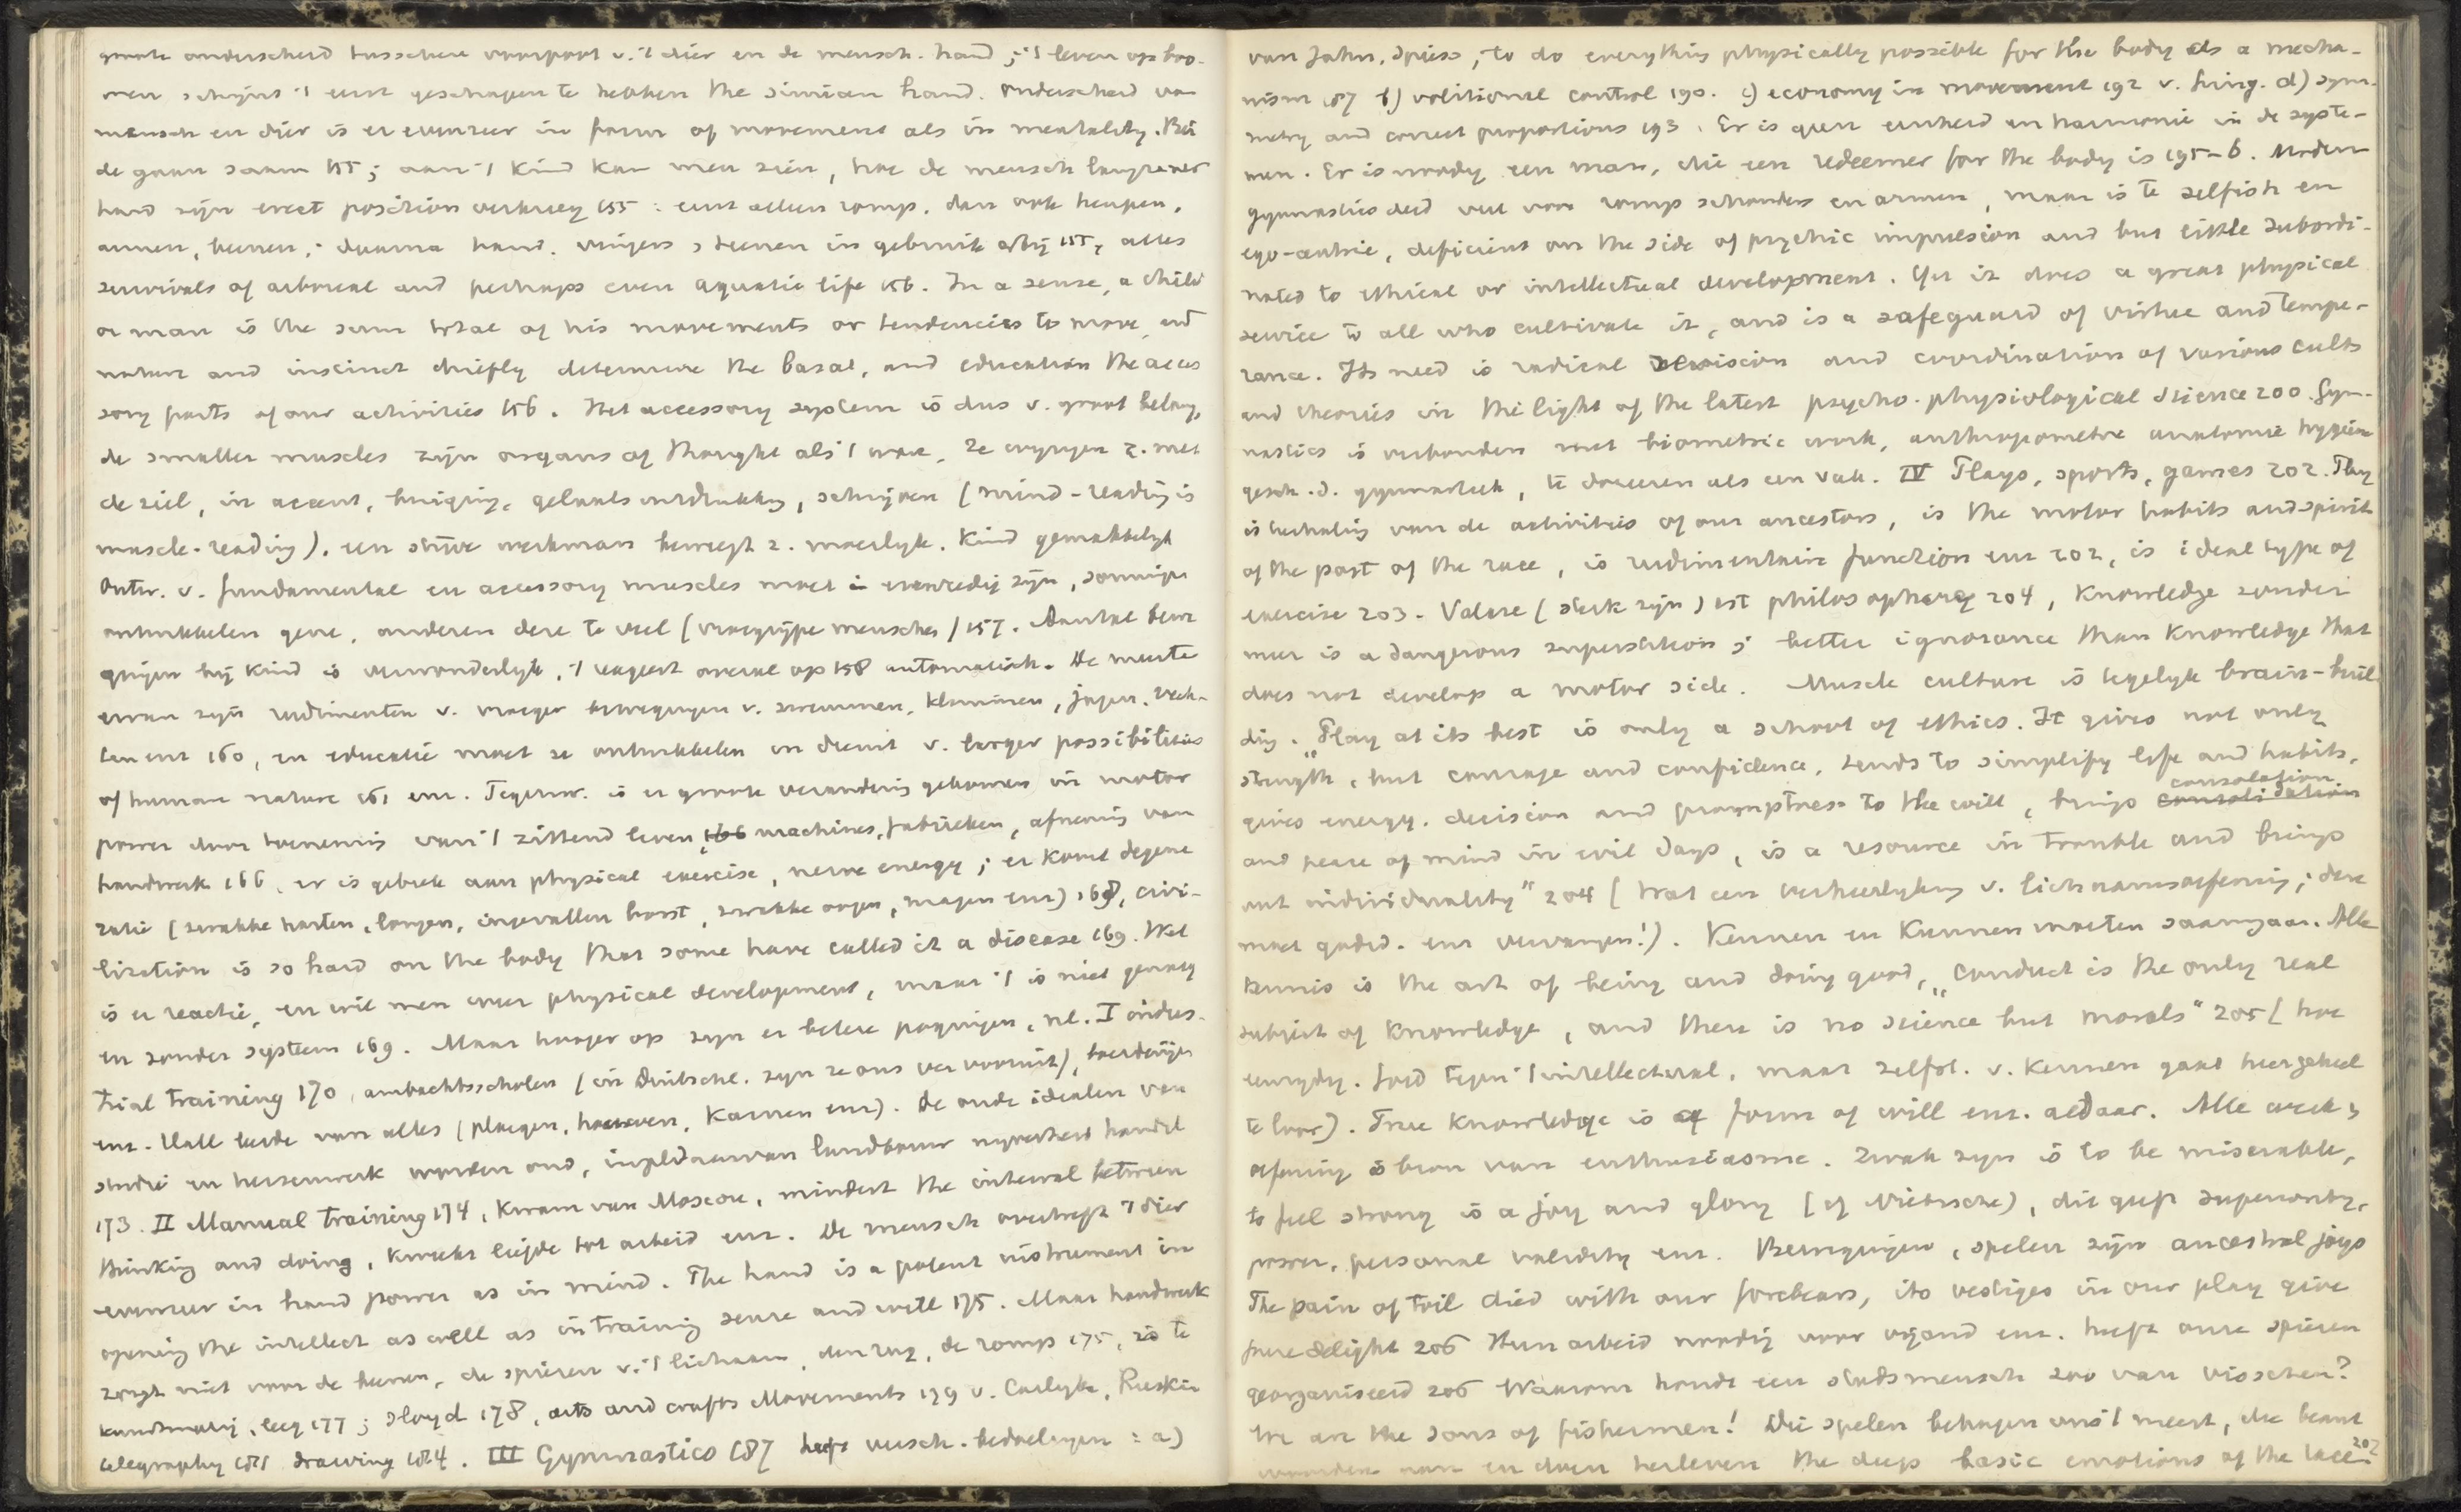 groote onderscheid tusschen voorpoot v. 't dier en de mensch. hand; 't leven op boo-
men schijnt 't eerst geschapen te hebben the simian hand. Onderscheid van
mensch en dier is er evenzeer in form of movement als in mentality. Bei
de gaan saam 155; aan 't kind kan men zien, hoe de mensch langzamer
hand zijn erect position verkreeg 155: eerst alleen romp, dan ook heupen,
armen, beenen; daarna hand. vingers, teenen in gebruik 155, alles
survivals of arboreal and perhaps even aquatic life 156. In a sense, a child
or man is the sum total of his movements or tendencies to move, and
nature and instinct chiefly determine the basal, and education the acces
sory parts of our activities 156. Het accessory system is dus v. groot belang,
de smaller muscles zijn organs of thought als 't ware, ze wijzigen z. met
de ziel, in accent, buiging, gelaatsuitdrukking, schrijven (mind-reading is
muscle-reading). een stijve werkman beweegt z. moeilijk. Kind gemakkelijk
Ontw. v. fundamental en accessory muscles moet in evenredig zijn, sommigen
ontwikkelen gene, anderen deze te veel (vroegrijpe menschen) 157. Aantal bewe
gingen bij kind is verwonderlijk, 't reageert overal op 158 automatisch. De meeste
ervan zijn rudimenten v. vroeger bewegingen v. zwemmen, klimmen, jagen, vech-
ten enz 160, en educatie moet ze ontwikkelen in dienst v. larger possibilities
of human nature 161 enz. Tegenw. is er groote verandering gekomen in motor
power door toeneming van 't zittend leven, 166 machines, fabrieken, afneming van
handwerk 166, er is gebrek aan physical exercise, nerve energy; er komt degene
ratie (zwakke harten, longen, ingevallen borst, zwakke oogen, magen enz) 168, civi-
lization is so hard on the body that some have called it a disease 169. Wel
is er reactie, en wil men weer physical development, maar 't is niet genoeg
en zonder system 169. Maar hooger op zijn er betere pogingen, nl. I indus-
trial training 170, ambachtsscholen (in Duitschl. zijn ze ons ver vooruit), boerderijen
enz. Hall leerde van alles (ploegen, karnen enz). De oude idealen van
studie en hersenwerk worden oud, landbouw nijverheid handel
173. II Manual training 174, kwam van Moscou, mindert the interval between
thinking and doing, kweekt liefde tot arbeid enz. De mensch overtreft 't dier
evenzeer in hand power as in mind. The hand is a potent instrument in
opening the intellect as well as in training sense and will 175. Maar handwerk
zorgt niet voor de beenen, de spieren v. 't lichaam, den rug, de romp 175, is te
kunstmatig, leeg 177; sloyd 178, arts and crafts Movements 179 v. Carlyle, Ruskin
telegraphy 181 drawing 184. III Gymnastics 187 heeft versch. bedoelingen: a)
van Jahn, Spiess, to do everything physically possible for the body als a mecha-
nism 187 b) volitional control 190. c) economy in movement 192 v. Ling. d) sym-
metry and correct proportions 193. Er is geen eenheid en harmonie in de syste-
men. Er is noodig een man, die een redeemer for the body is 195-6. Modern
gymnastics deed veel voor romp schouders en armen, maar is te selfish en
ego-centric, deficient on the side of psychic impulsion and but little subordi-
nated to ethical or intellectual development. Yet it does a great physical
service to all who cultivate it, and is a safeguard of virtue and tempe-
rance. Its need is radical revision and coordination of various cults
and theories in the light of the latest psycho-physiological science 200. Gym-
nastics is verbonden met biometric work, anthropometrie anatomie hygiëne
gesch. d. gymnastiek, te doceeren als een vak. IV Plays, sports, games 202. Play
is herhaling van de activities of our ancestors, is the motor habits and spirit
of the past of the race, is rudimentair function enz 202, is ideal type of
exercise 203. Valere (sterk zijn) est philosophare 204, Knowledge zonder
meer is a dangerous superstition; better ignorance than knowledge that
does not develop a motor side. Muscle culture is tegelijk brain-buil
ding. „Play at its best is only a school of ethics. It gives not only
strength, but courage and confidence, tends to simplify life and habits,
gives energy, decision and promptness to the will, brings ~~consolidation~~ consolation
and peace of mind in evil days, is a resource in trouble and brings
out individuality" 204 (wat een verheerlijking v. lichaamsoefening; deze
moet godsd. enz vervangen!). Kennen en Kunnen moeten saamgaan. Alle
kennis is the art of being and doing good, „conduct is the only real
subject of knowledge, and there is no science but morals" 205 (hoe
eenzijdig. Goed tegen 't intellectual, maar zelfst. v. kennen gaat hier geheel
te loor). True knowledge is a form of will enz. aldaar. Alle
oefening is bron van enthusiasme. Zwak zijn is to be miserable,
to feel strong is a joy and glory (cf Nietzsche), dit geeft superiority,
power, personal validity enz. Bewegingen, spelen zijn ancestral joys
The pain of toil died with our forebears, its vestiges in our play give
pure delight 206 Hun arbeid noodig voor vijand enz. heeft onze spieren
georganiseerd 206 Waarom houdt een stadsmensch zoo van visschen?
We are the sons of fishermen! Die spelen behagen ons 't meest, die beant
woorden aan en doen herleven the deep basic emotions of the race. 207